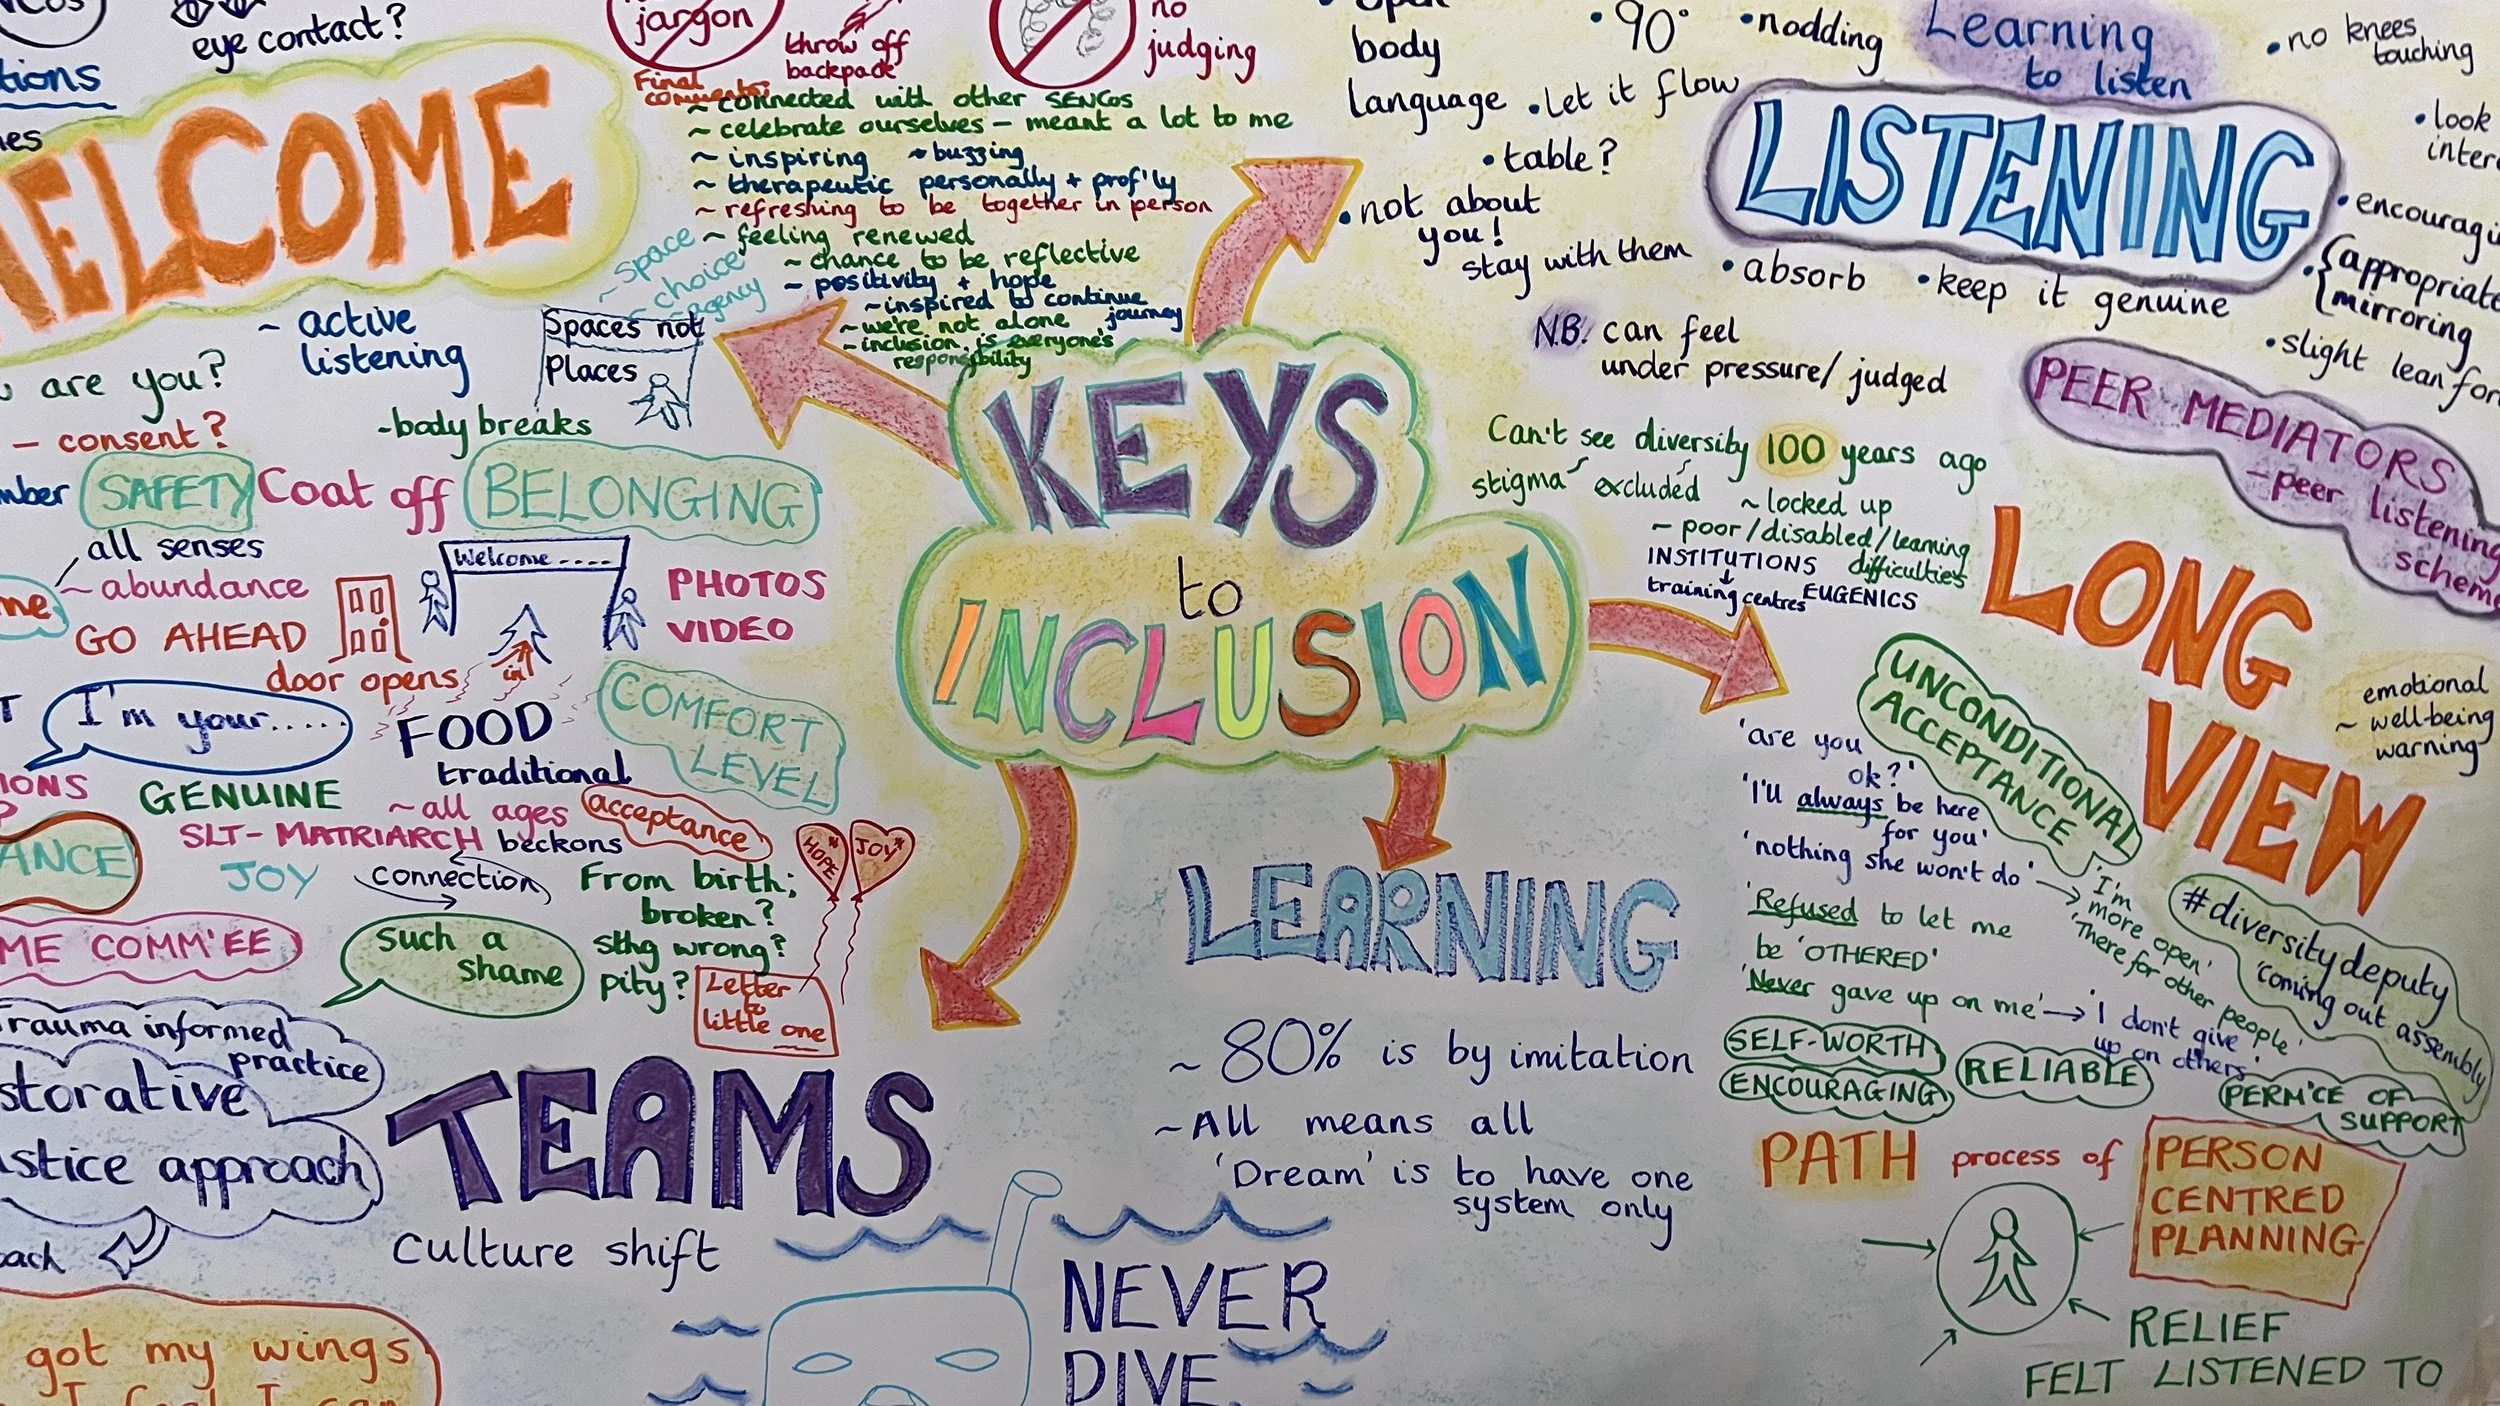 eye contact?
jargon
throw off
backpack
no
judging
WELCOME
Final
comments:
~ connected with other SENCos
~ celebrate ourselves – meant a lot to me
~ inspiring ~ buzzing
~ therapeutic personally + prof'ly
~ refreshing to be together in person
~ feeling renewed
~ chance to be reflective
~ positivity + hope
~ inspired to continue
journey
~ we're not alone
~ inclusion is everyone's
responsibility
~ space
~ choice
agency
Spaces not
Places
~ active
listening
are you?
– consent?
- body breaks
SAFETY
Coat off
BELONGING
all senses
~ abundance
GO AHEAD
door opens
Welcome ....
in
PHOTOS
VIDEO
I'm your.....
FOOD
traditional
~ all ages
COMFORT
LEVEL
GENUINE
SLT- MATRIARCH beckons
acceptance
JOY
connection
HOPE
JOY
From birth;
broken?
sthg wrong?
pity?
COMM'EE
such a
shame
Letter
to
little one
Trauma informed
practice
approach
TEAMS
Culture shift
got my wings
KEYS
to
INCLUSION
body
language
• 90°
• nodding
• let it flow
• table?
• not about
you!
stay with them
Learning
to listen
LISTENING
• no knees
touching
• look
• absorb
• keep it genuine
appropriate
mirroring
• slight lean
N.B. can feel
under pressure/ judged
PEER MEDIATORS
– peer listening
scheme
Can't see diversity 100 years ago
stigma excluded
~ locked up
~ poor/disabled/learning
difficulties
INSTITUTIONS
training centres
EUGENICS
LONG
VIEW
emotional
~ well-being
warning
UNCONDITIONAL
ACCEPTANCE
'are you
ok?'
'I'll always be here
for you'
'nothing she won't do'
'I'm
more open'
'There for other people'
'Refused to let me
be 'OTHERED'
'Never gave up on me'
'I don't give
up on others'
#diversitydeputy
'coming out assembly
SELF-WORTH
ENCOURAGING
RELIABLE
PERM'CE OF
SUPPORT
PATH process of
PERSON
CENTRED
PLANNING
RELIEF
FELT LISTENED TO
LEARNING
~ 80% is by imitation
~ All means all
'Dream' is to have one
system only
NEVER
DIVE